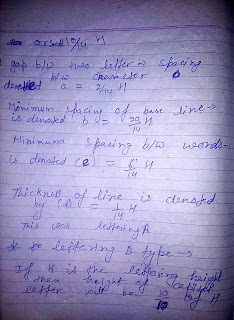 or small 10/14 H
gap b/w two letter = spacing
b/w character
denoted a = 2/14 H
Minimum spacing of base line →
is denoted b = 20/14 H
Minimum spacing b/w words →
is denoted (e) = 6/14 H
Thickness of line is denoted
by (d) = 1/14 H
This was lettering A
lettering B type →
If H is the lettering height
then height of
letter will be of H